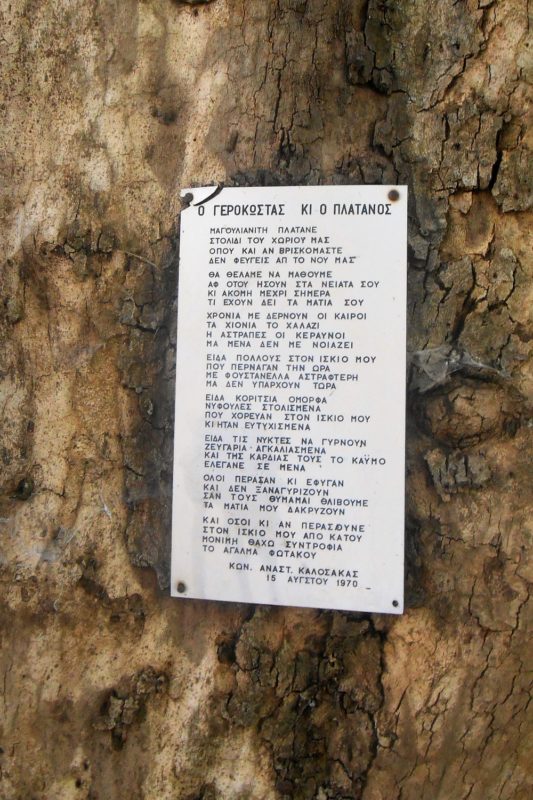 Ο ΓΕΡΟΚΩΣΤΑΣ ΚΙ Ο ΠΛΑΤΑΝΟΣ
ΜΑΓΟΥΛΙΑΝΙΤΗ ΠΛΑΤΑΝΕ
ΣΤΟΛΙΔΙ ΤΟΥ ΧΩΡΙΟΥ ΜΑΣ
ΟΠΟΥ ΚΑΙ ΑΝ ΒΡΙΣΚΟΜΑΣΤΕ
ΔΕΝ ΦΕΥΓΕΙΣ ΑΠ ΤΟ ΝΟΥ ΜΑΣ
ΘΑ ΘΕΛΑΜΕ ΝΑ ΜΑΘΟΥΜΕ
ΑΦ ΟΤΟΥ ΗΣΟΥΝ ΣΤΑ ΝΕΙΑΤΑ ΣΟΥ
ΚΙ ΑΚΟΜΗ ΜΕΧΡΙ ΣΗΜΕΡΑ
ΤΙ ΕΧΟΥΝ ΔΕΙ ΤΑ ΜΑΤΙΑ ΣΟΥ
ΧΡΟΝΙΑ ΜΕ ΔΕΡΝΟΥΝ ΟΙ ΚΑΙΡΟΙ
ΤΑ ΧΙΟΝΙΑ ΤΟ ΧΑΛΑΖΙ
Η ΑΣΤΡΑΠΕΣ ΟΙ ΚΕΡΑΥΝΟΙ
ΜΑ ΜΕΝΑ ΔΕΝ ΜΕ ΝΟΙΑΖΕΙ
ΕΙΔΑ ΠΟΛΛΟΥΣ ΣΤΟΝ ΙΣΚΙΟ ΜΟΥ
ΠΟΥ ΠΕΡΝΑΓΑΝ ΤΗΝ ΩΡΑ
ΜΕ ΦΟΥΣΤΑΝΕΛΛΑ ΑΣΤΡΑΦΤΕΡΗ
ΜΑ ΔΕΝ ΥΠΑΡΧΟΥΝ ΤΩΡΑ
ΕΙΔΑ ΚΟΡΙΤΣΙΑ ΟΜΟΡΦΑ
ΝΥΦΟΥΛΕΣ ΣΤΟΛΙΣΜΕΝΑ
ΠΟΥ ΧΟΡΕΥΑΝ ΣΤΟΝ ΙΣΚΙΟ ΜΟΥ
ΚΙ ΗΤΑΝ ΕΥΤΥΧΙΣΜΕΝΑ
ΕΙΔΑ ΤΙΣ ΝΥΚΤΕΣ ΝΑ ΓΥΡΝΟΥΝ
ΖΕΥΓΑΡΙΑ ΑΓΚΑΛΙΑΣΜΕΝΑ
ΚΑΙ ΤΗΣ ΚΑΡΔΙΑΣ ΤΟΥΣ ΤΟ ΚΑΫΜΟ
ΕΛΕΓΑΝΕ ΣΕ ΜΕΝΑ
ΟΛΟΙ ΠΕΡΑΣΑΝ ΚΙ ΕΦΥΓΑΝ
ΚΑΙ ΔΕΝ ΞΑΝΑΓΥΡΙΖΟΥΝ
ΣΑΝ ΤΟΥΣ ΘΥΜΑΜΑΙ ΘΛΙΒΟΥΜΕ
ΤΑ ΜΑΤΙΑ ΜΟΥ ΔΑΚΡΥΖΟΥΝ
ΚΑΙ ΟΣΟΙ ΚΙ ΑΝ ΠΕΡΑΣΟΥΝΕ
ΣΤΟΝ ΙΣΚΙΟ ΜΟΥ ΑΠΟ ΚΑΤΟΥ
ΜΟΝΙΜΗ ΘΑΧΩ ΣΥΝΤΡΟΦΙΑ
ΤΟ ΑΓΑΛΜΑ ΦΩΤΑΚΟΥ
ΚΩΝ. ΑΝΑΣΤ. ΚΑΛΟΣΑΚΑΣ
15 ΑΥΓΣΤΟΥ 1970